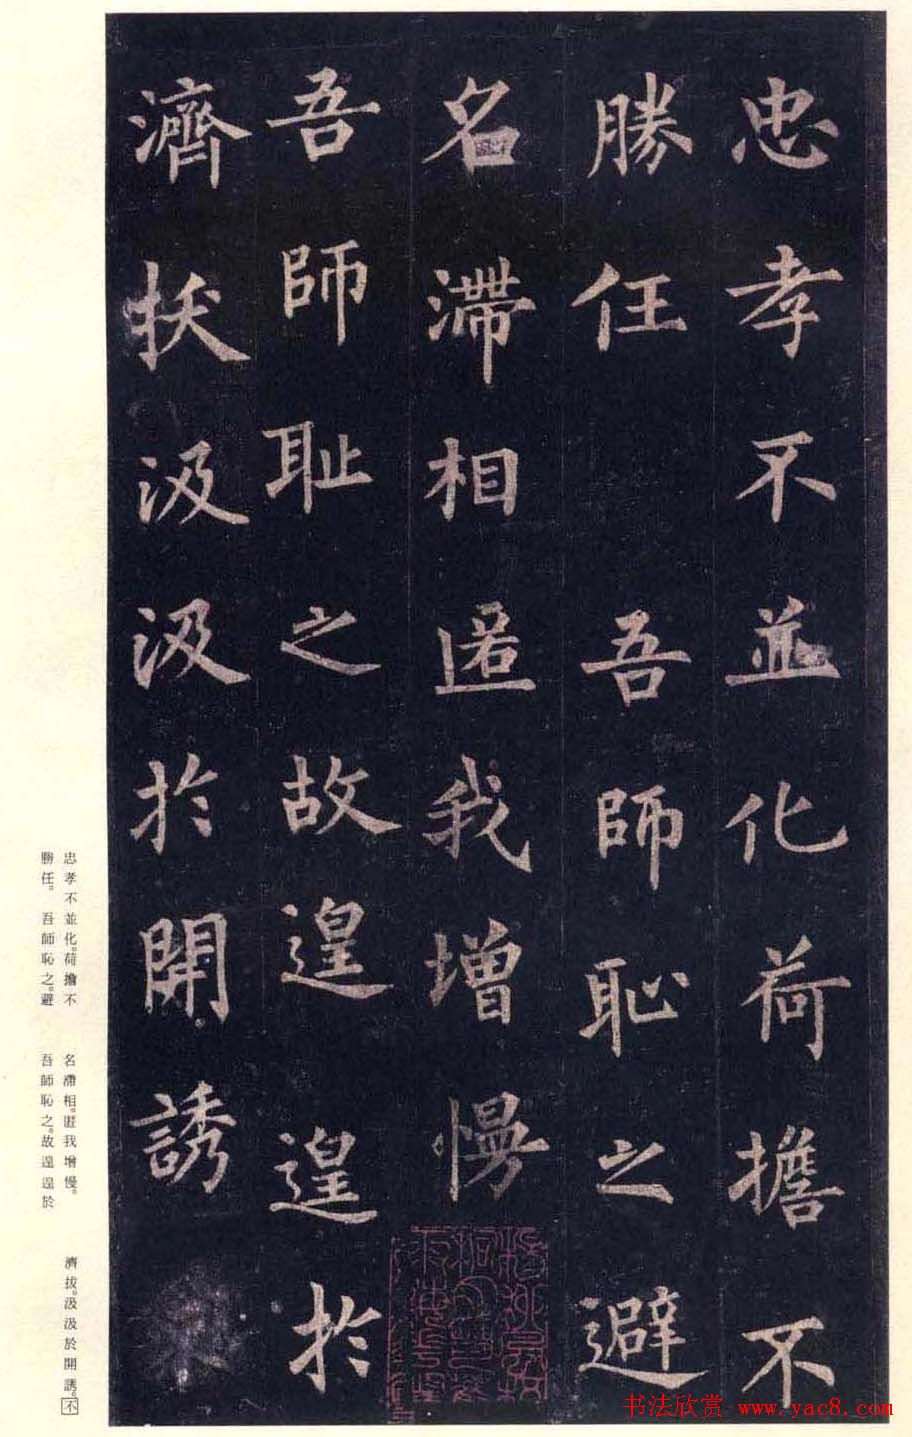 忠孝不並化荷擔不
勝任 吾師恥之避
名滯相匿我增慢
吾師耻之故遑遑於
濟拔汲汲於開誘
忠孝不並化。荷擔不
勝任。吾師恥之。避
名滯相。匿我增慢。
吾師恥之。故遑遑於
濟拔。汲汲於開誘。不
书法欣赏 www.yac8.com